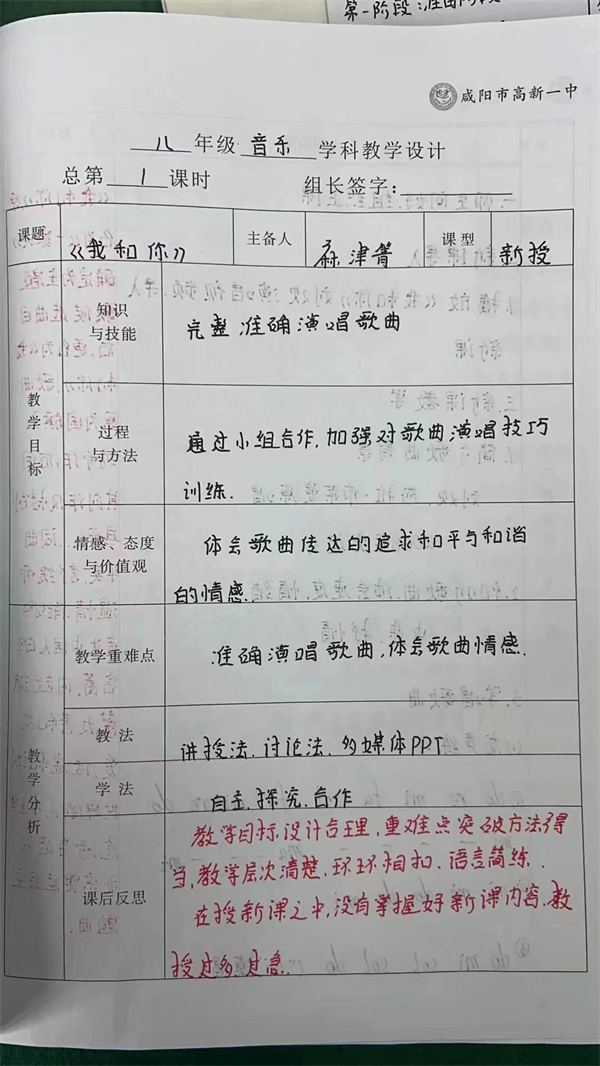 第一阶段：准备阶段
咸阳市高新一中
八年级 音乐 学科教学设计
总第 1 课时 组长签字：
课题 《我和你》 主备人 麻津菁 课型 新授
教学目标
知识与技能 完整准确演唱歌曲
过程与方法 通过小组合作，加强对歌曲演唱技巧
训练.
情感、态度与价值观 体会歌曲传达的追求和平与和谐
的情感.
教学分析
教学重难点 准确演唱歌曲，体会歌曲情感.
教法 讲授法、讨论法、多媒体PPT
学法 自主、探究、合作
课后反思 教学目标设计合理，重难点突破方法得
当，教学层次清楚、环环相扣、语言简练.
在授新课之中，没有掌握好新课内容，教
授过多过急.